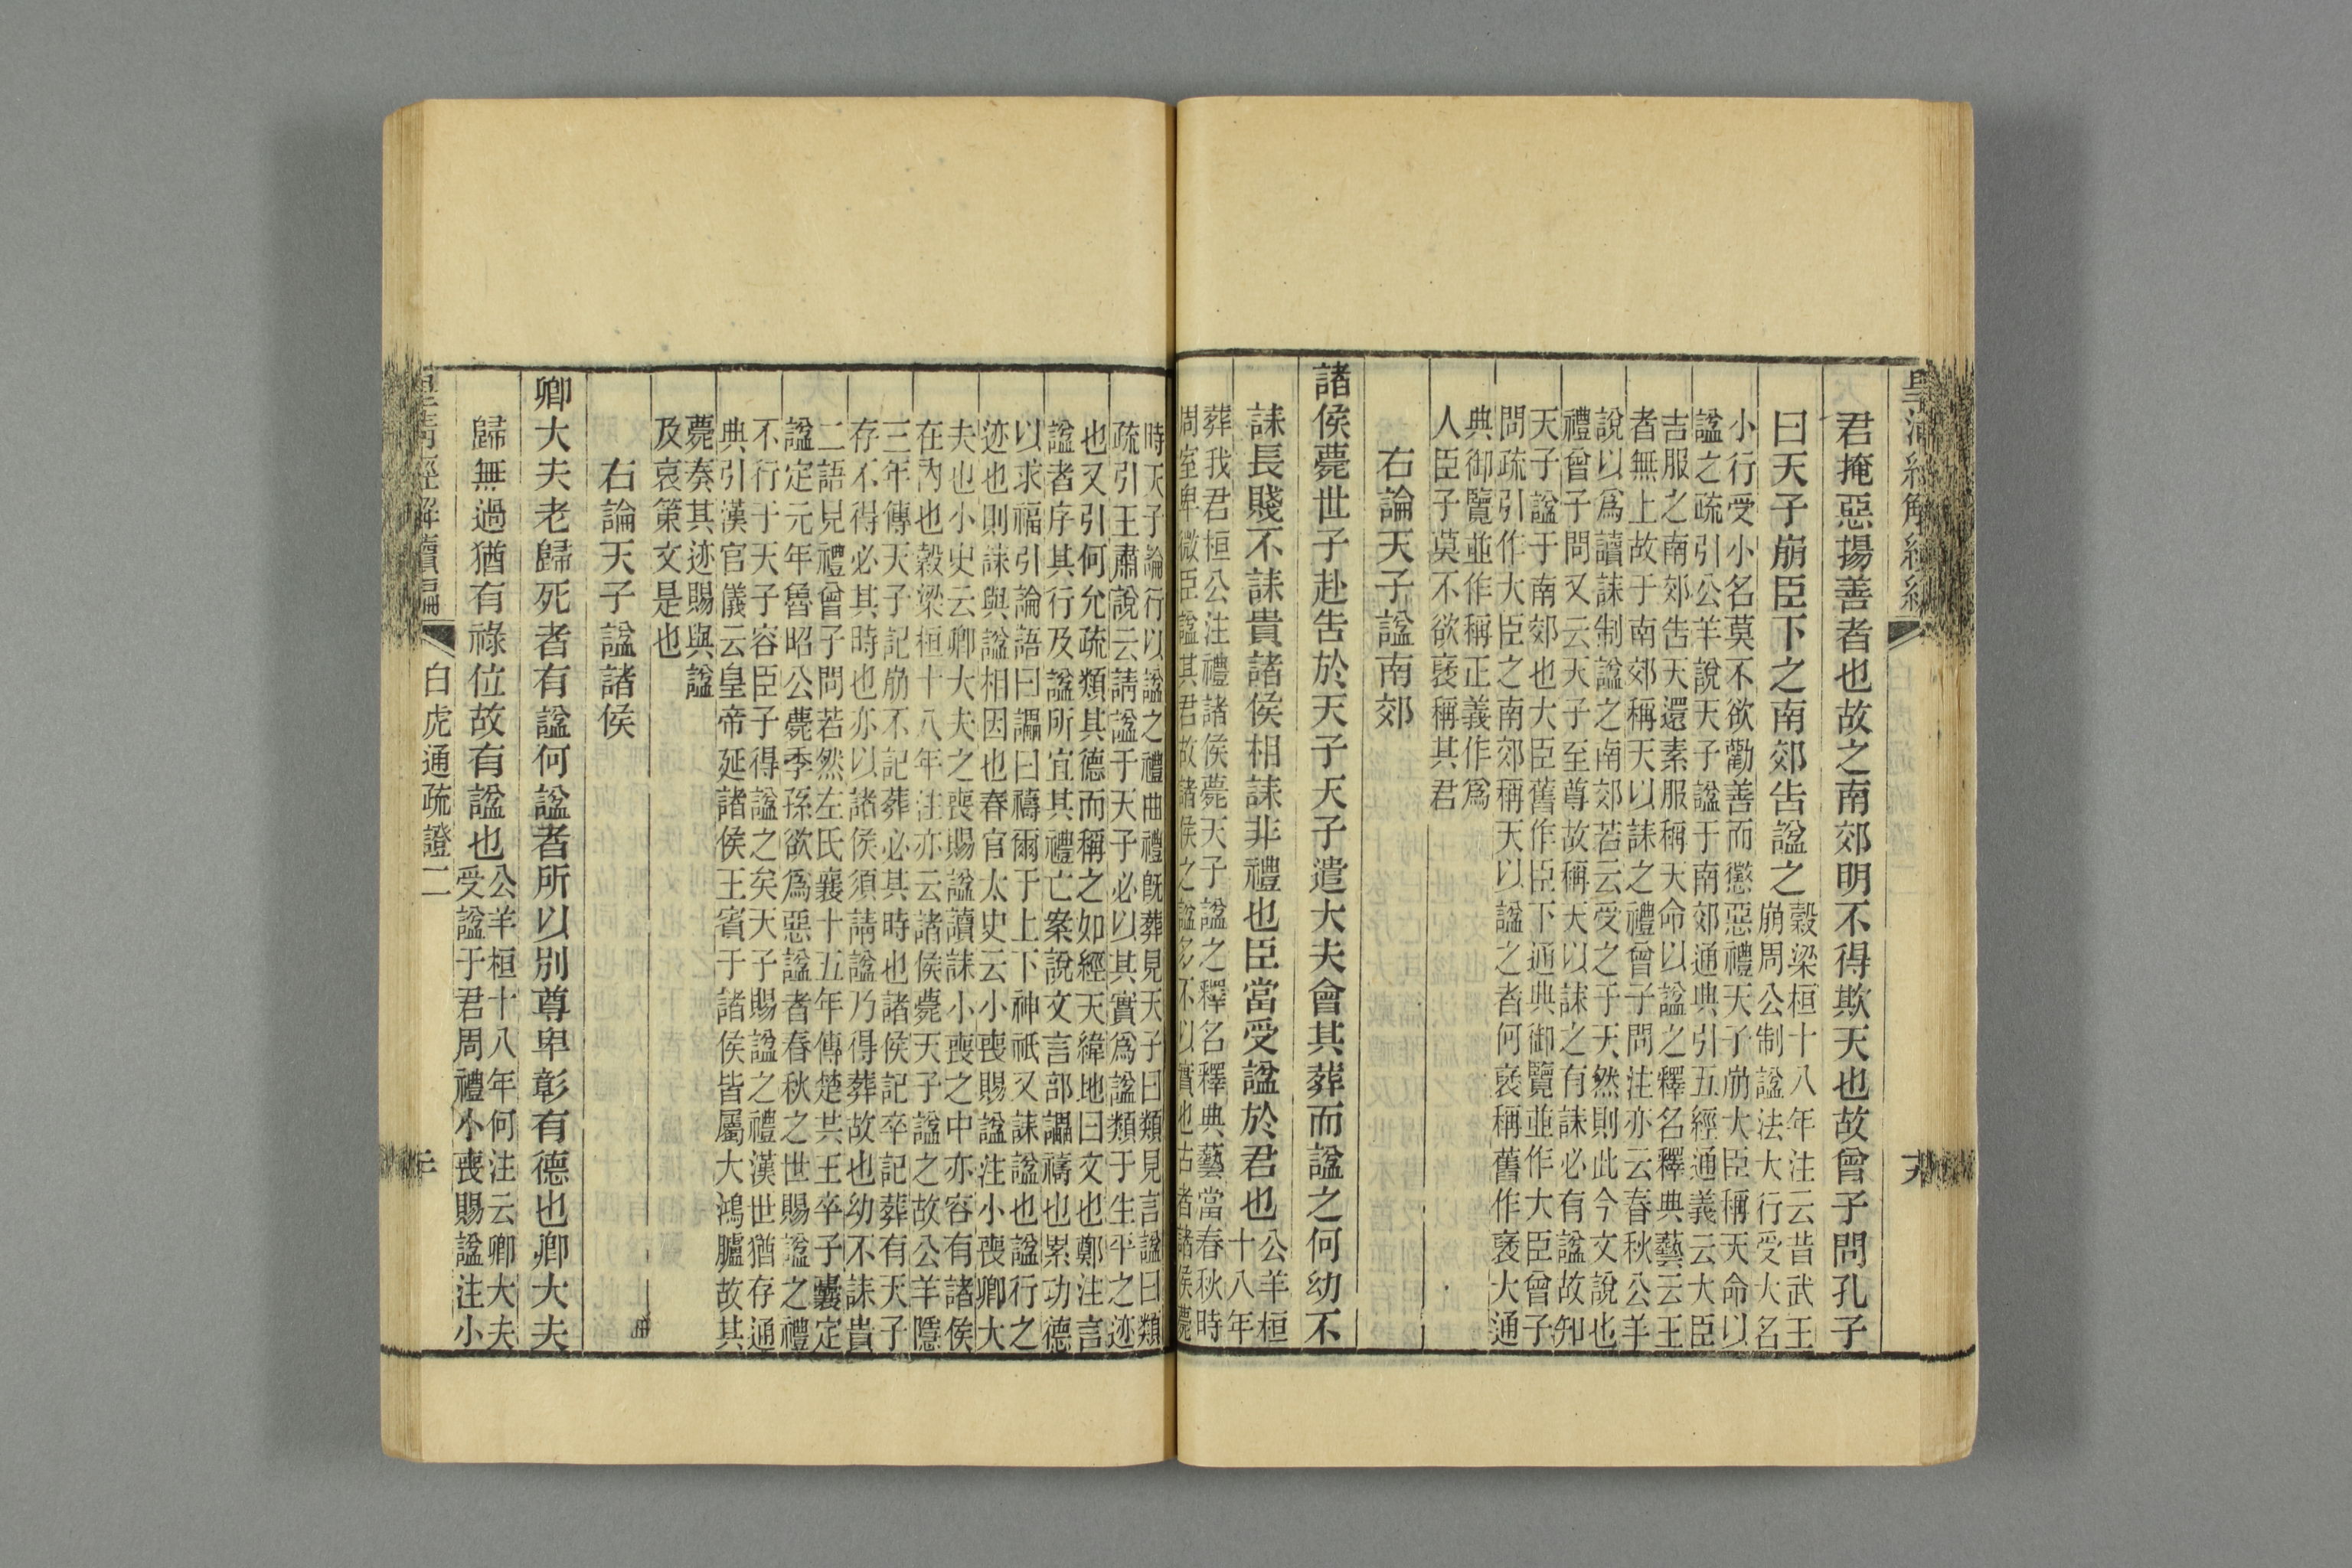 君掩惡揚善者也故之南郊明不得欺天也故曾子問孔子
曰天子崩臣下之南郊告諡之
穀梁桓十八年注云昔武王
崩周公制諡法大行受大名
小行受小名莫不欲勸善而懲惡禮天子崩大臣稱天命以
諡之疏引公羊說天子諡于南郊通典引五經通義云大臣
吉服之南郊告天還素服稱天命以諡之釋名釋典藝云王
者無上故于南郊稱天以誄之禮曾子問注亦云春秋公羊
說以爲讀誄制諡之南郊若云受之于天然則此今文說也
禮曾子問又云天子至尊故稱天以誄之有誄必有諡故知
天子諡于南郊也大臣舊作臣下通典御覽並作大臣曾子
問疏引作大臣之南郊稱天以諡之者何褒稱舊作褒大通
典御覽並作稱正義作爲
人臣子莫不欲褒稱其君
右論天子諡南郊
諸侯薨世子赴告於天子天子遣大夫會其葬而諡之何幼不
誄長賤不誄貴諸侯相誄非禮也臣當受諡於君也
公羊桓
十八年
葬我君桓公注禮諸侯薨天子諡之釋名釋典藝當春秋時
周室卑微臣諡其君故諸侯之諡多不以實也古者諸侯薨
時天子論行以諡之禮曲禮旣葬見天子曰類見言諡曰類
疏引王肅說云請諡于天子必以其實爲諡類于生平之迹
也又引何允疏類其德而稱之如經天緯地曰文也鄭注言
諡者序其行及諡所宜其禮亡案說文言部讄禱也累功德
以求福引論語曰讄曰禱爾于上下神祇又誄諡也諡行之
迹也則誄與諡相因也春官太史云小喪賜諡注小喪卿大
夫也小史云卿大夫之喪賜諡讀誄小喪之中亦容有諸侯
在內也穀梁桓十八年注亦云諸侯薨天子諡之故公羊隱
三年傳天子記崩不記葬必其時也諸侯記卒記葬有天子
存不得必其時也亦以諸侯須請諡乃得葬故也幼不誄貴
二語見禮曾子問若然左氏襄十五年傳楚共王卒子囊定
諡定元年魯昭公薨季孫欲爲惡諡者春秋之世賜諡之禮
不行于天子容臣子得諡之矣天子賜諡之禮漢世猶存通
典引漢官儀云皇帝延諸侯王賓于諸侯皆屬大鴻臚故其
薨奏其迹賜與諡
及哀策文是也
右論天子諡諸侯
卿大夫老歸死者有諡何諡者所以別尊卑彰有德也卿大夫
歸無過猶有祿位故有諡也
公羊桓十八年何注云卿大夫
受諡于君周禮小喪賜諡注小
皇清經解續編
白虎通疏證二